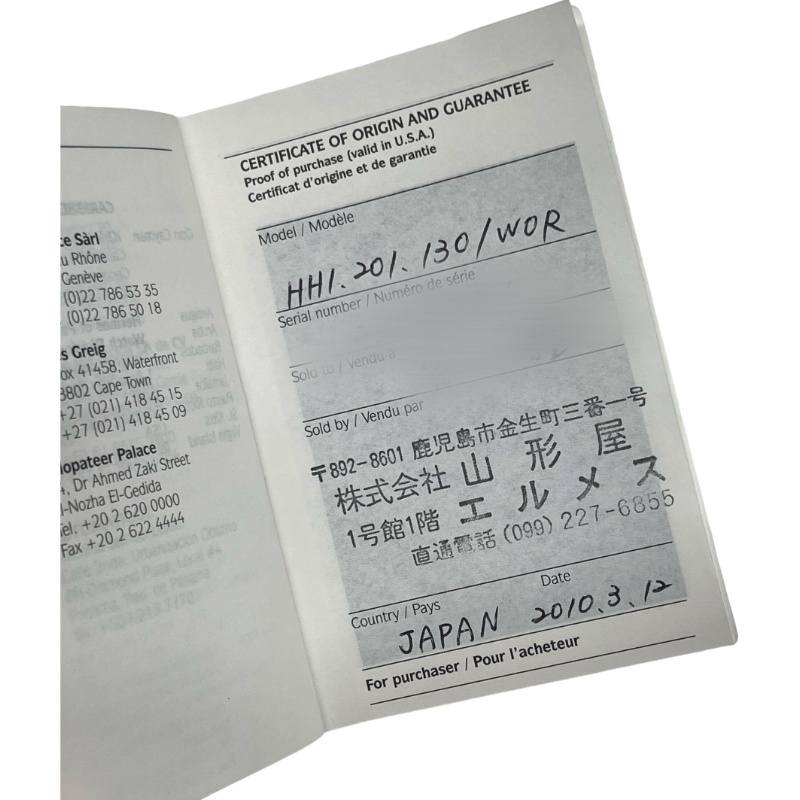 ce Sàrl
u Rhône
Genève
(0)22 786 53 35
(0)22 786 50 18
s Greig
ox 41458, Waterfront
8802 Cape Town
+27 (021) 418 45 15
+27 (021) 418 45 09
opateer Palace
, Dr Ahmed Zaki Street
l-Nozha El-Gedida
Tel. +20 2 620 0000
Fax +20 2 622 4444
CERTIFICATE OF ORIGIN AND GUARANTEE
Proof of purchase (valid in U.S.A.)
Certificat d'origine et de garantie
Model / Modèle
HH1.201.130/WOR
Serial number / Numéro de série
Sold to / Vendu à
Sold by / Vendu par
〒892-8601 鹿児島市金生町三番一号
株式会社 山形屋
1号館1階 エルメス
直通電話 (099) 227-6855
Country / Pays Date
JAPAN 2010.3.12
For purchaser / Pour l'acheteur